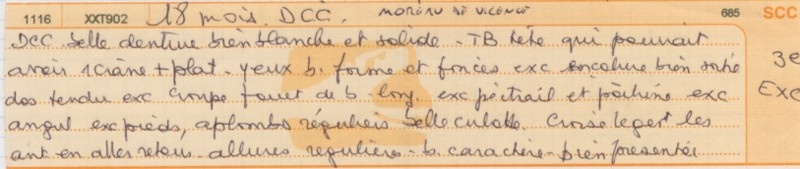 1116 XXT902 18 mois. DCC. MOREAU DE VICENCE 685 SCC
DCC belle dentine bien blanche et solide - TB tête qui pourrait
avoir 1 crâne + plat - yeux b. forme et foncés exc encolure bien sortie 3e
dos tendu exc croupe fouet de b. long. exc poitrail et poitrine exc Exc
angul exc pieds, aplombs réguliers belle culotte. Croise leger t les
ant en aller retour - allures régulières - b. caractère - bien présentée